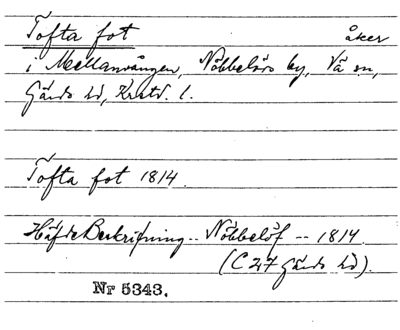 Tofta fot åker
i Mellanvången, Nöbbelövs by, Vä sn,
Gärds hd, Krstd. l.
Tofta fot 1814.
Häfde Beskrifning -- Nöbbelöf -- 1814.
(C 27 Gärds hd).
Nr 5343.